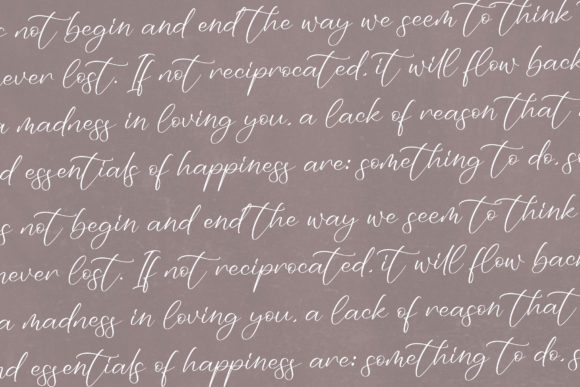 not begin and end the way we seem to think
never lost. If not reciprocated, it will flow back
a madness in loving you, a lack of reason that
essentials of happiness are: something to do,
not begin and end the way we seem to think
never lost. If not reciprocated, it will flow back
a madness in loving you, a lack of reason that
essentials of happiness are: something to do,